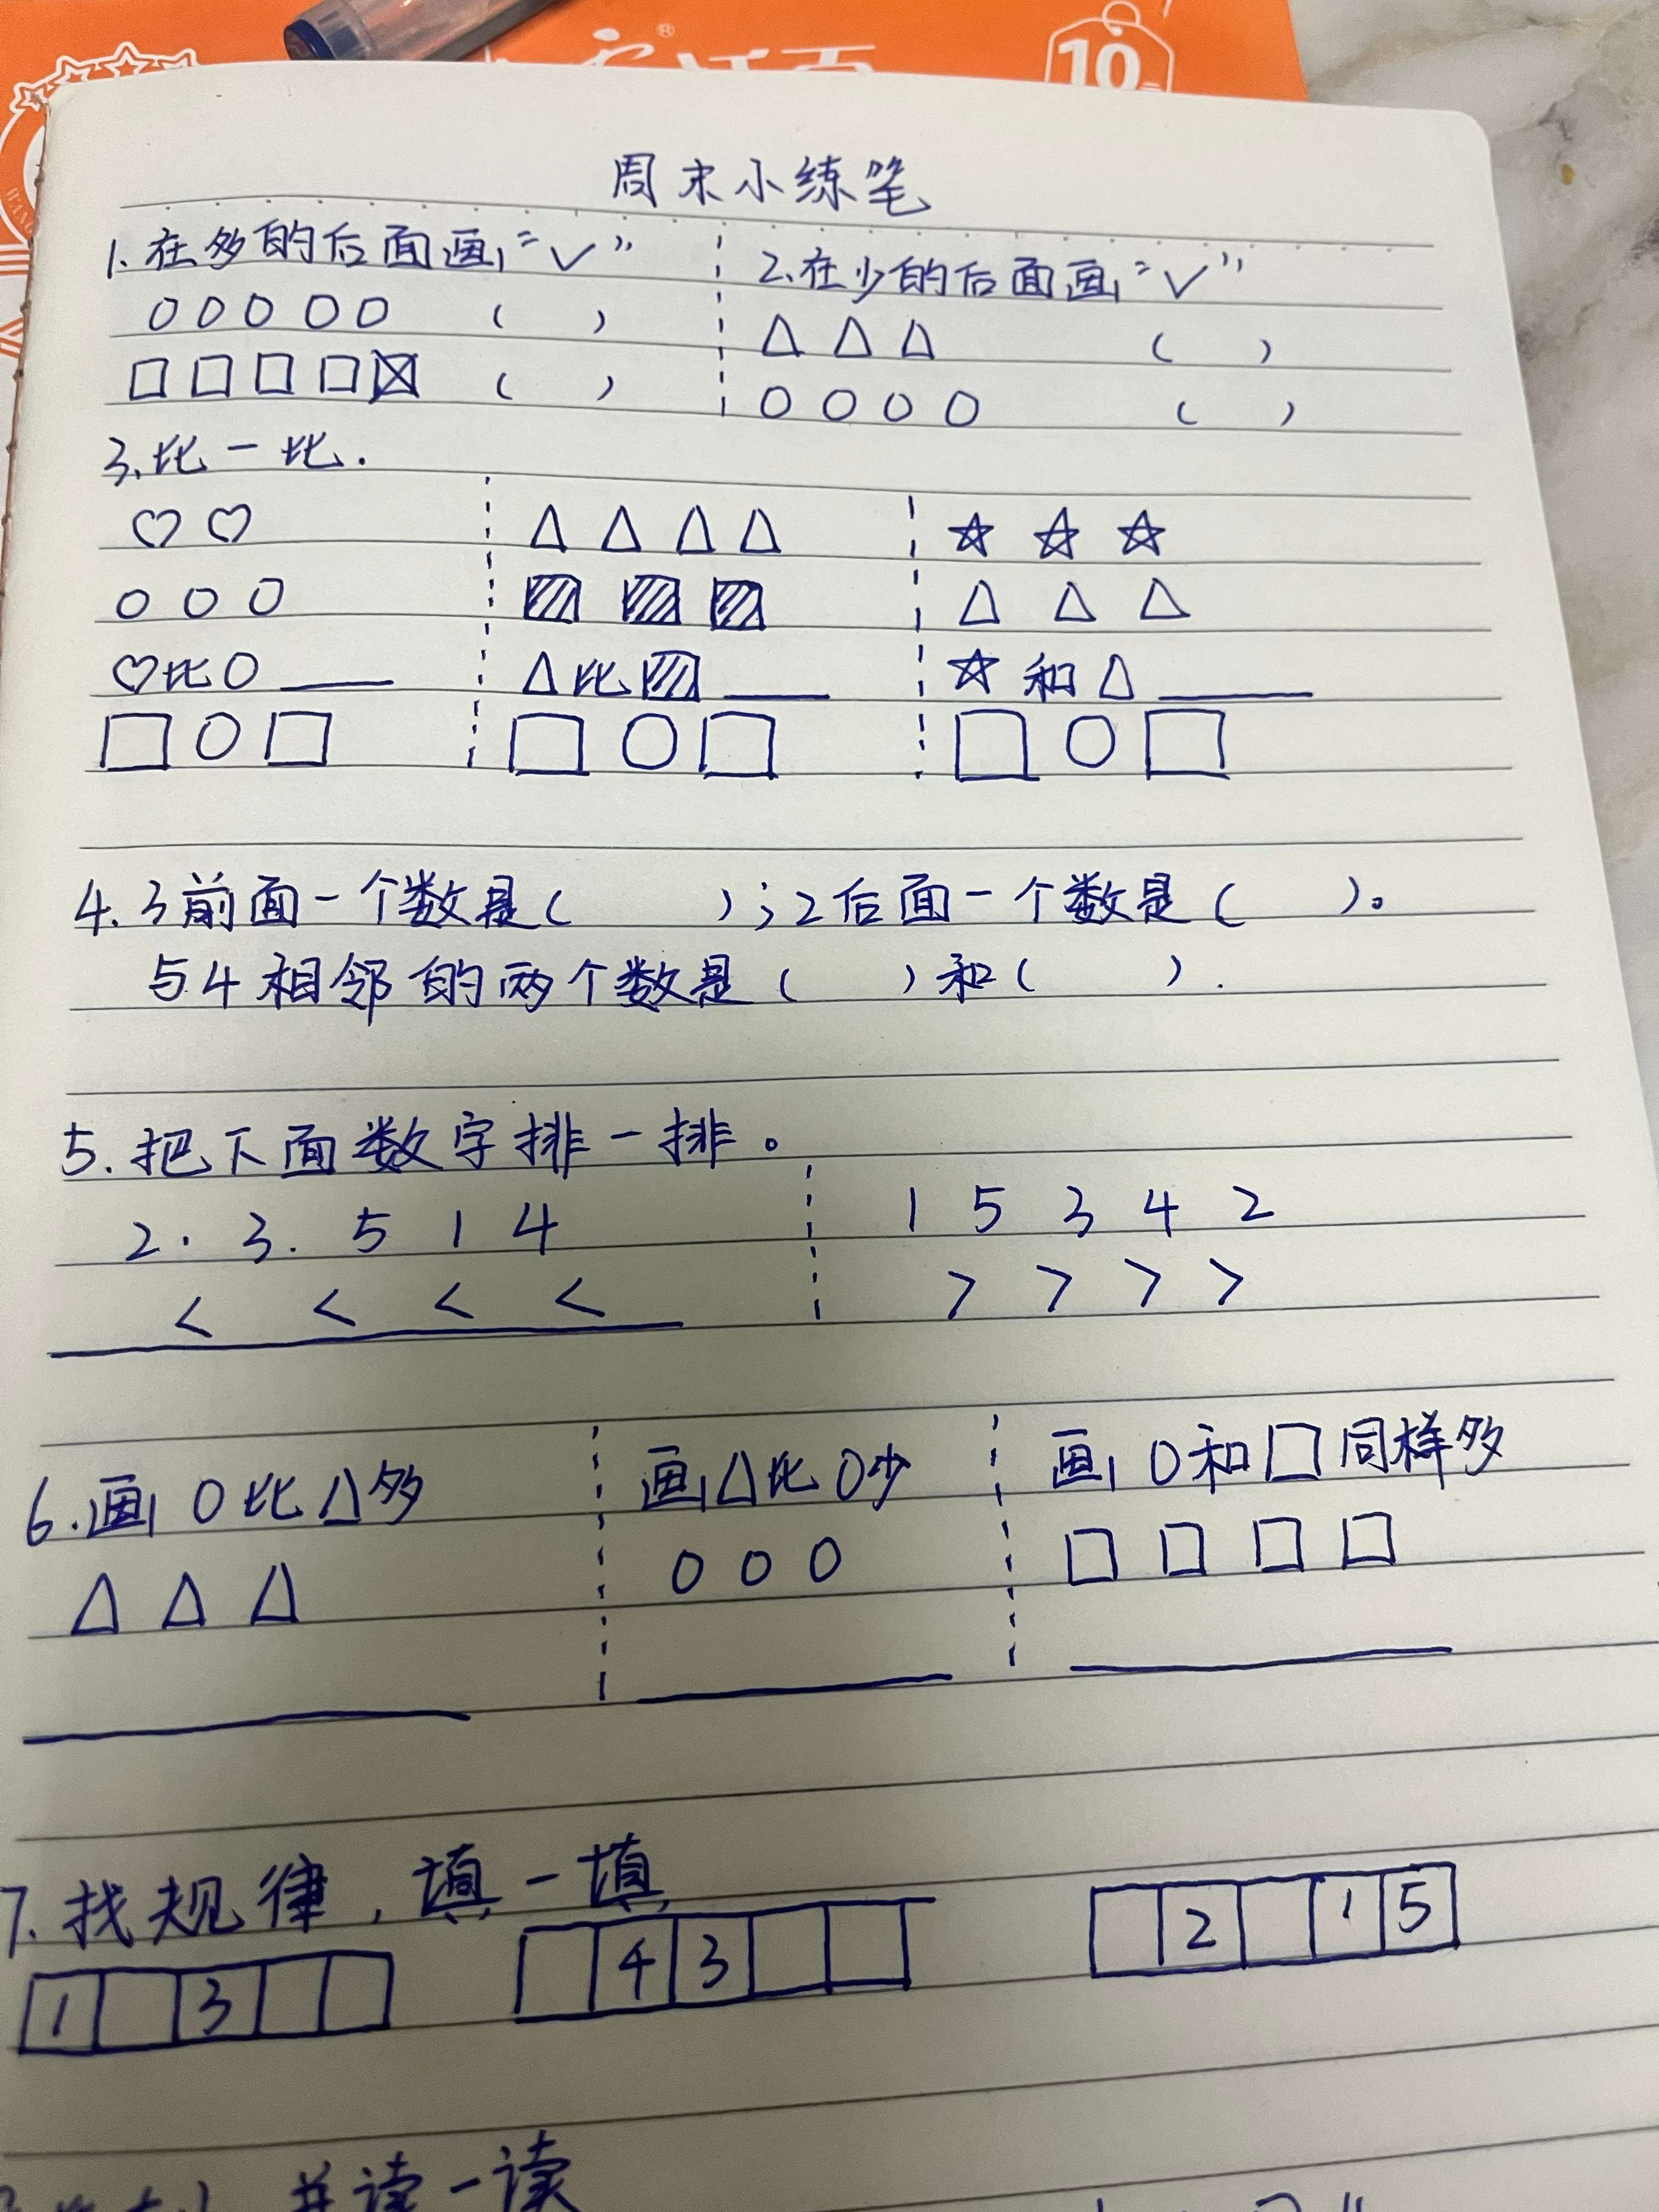 10
周末小练笔
1.在多的后面画“✓” 2.在少的后面画“✓”
○○○○○ ( ) △△△ ( )
□□□□☒ ( ) ○○○○ ( )
3.比一比.
♡♡ △△△△ ☆☆☆
○○○ ▨▨▨ △△△
♡比○____ △比▨____ ☆和△____
□○□ □○□ □○□
4.3前面一个数是( );2后面一个数是( )。
与4相邻的两个数是( )和( ).
5.把下面数字排一排。
2. 3. 5 1 4 1 5 3 4 2
< < < < > > > >
6.画○比△多 画△比○少 画○和□同样多
△△△ ○○○ □□□□
7.找规律,填一填
1 3 4 3 2 1 5
并读一读